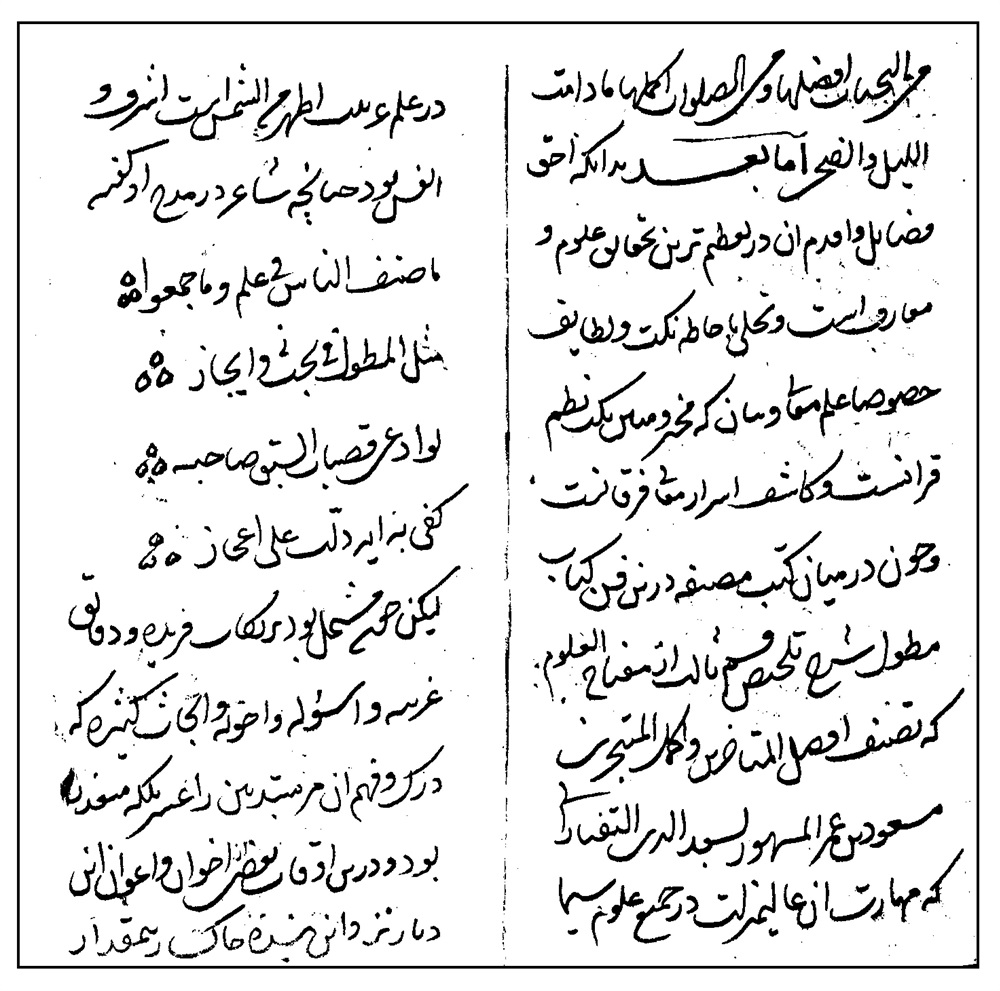 من التحیات افضلها و من الصلوات اکملها ما دامت
اللیل والضحی اما بعد بدانکه احق
فضایل و اقدم آن در تعظیم ترین حقایق علوم و
معارف است و تحلی باحاطه نکت و لطایف
خصوصا علم معانی و بیان که مخبر و مبین نکت نظم
قرانست و کاشف اسرار معانی فرقانست
و چون در میان کتب مصنفه درین فن کتاب
مطول شرح تلخیص قسم ثالث از مفتاح العلوم
که تصنیف افضل المتاخرین و اکمل المتبحرین
مسعود بن عمر المشهور بسعد الدین التفتازانی
که مهارت آن عالیمنزلت در جمیع علوم سیما
در علم عربیت اظهر من الشمس است اشرف و
انفس بود چنانچه شاعر در مدح او گفته
ما صنف الناس فی علم و ما جمعوا
مثل المطول فی بحث و ایجاز
لو ادعی قصبات السبق صاحبه
کفی به ایه دلت علی اعجاز
لیکن چون مشتمل بود بر نکات فریده و دقایق
غریبه و اسؤله و اجوبه و ابحاث کثیره که
درک و فهم آن مر مبتدیین را عسیر بلکه متعذر
بود و درین اوقات بعضی از اخوان و اعوان این
دیار نزد این بنده خاکسار بیمقدار